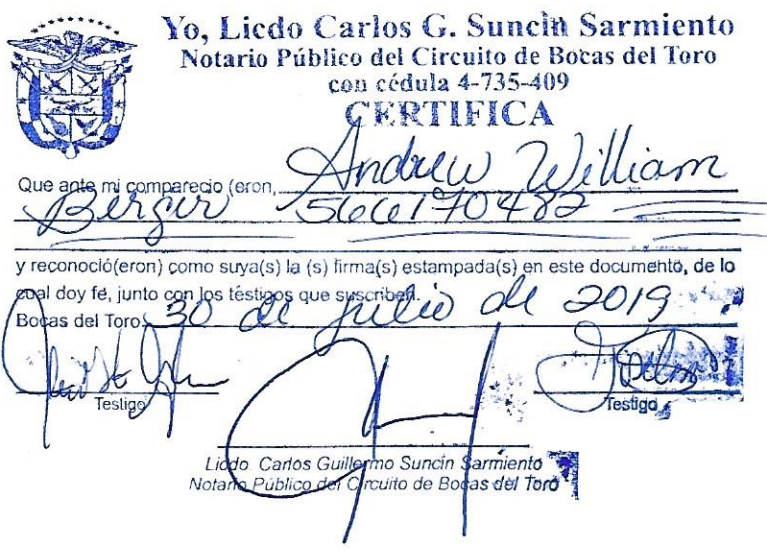 Yo, Licdo Carlos G. Suncín Sarmiento
Notario Público del Circuito de Bocas del Toro
con cédula 4-735-409
CERTIFICA
Que ante mi comparecio (eron, Andrew William
Berger 566170482
y reconoció(eron) como suya(s) la (s) firma(s) estampada(s) en este documento, de lo
cual doy fé, junto con los testigos que suscriben.
Bocas del Toro, 30 de julio de 2019
Testigo
Testigo
Licdo Carlos Guillermo Suncín Sarmiento
Notario Público del Circuito de Bocas del Toro